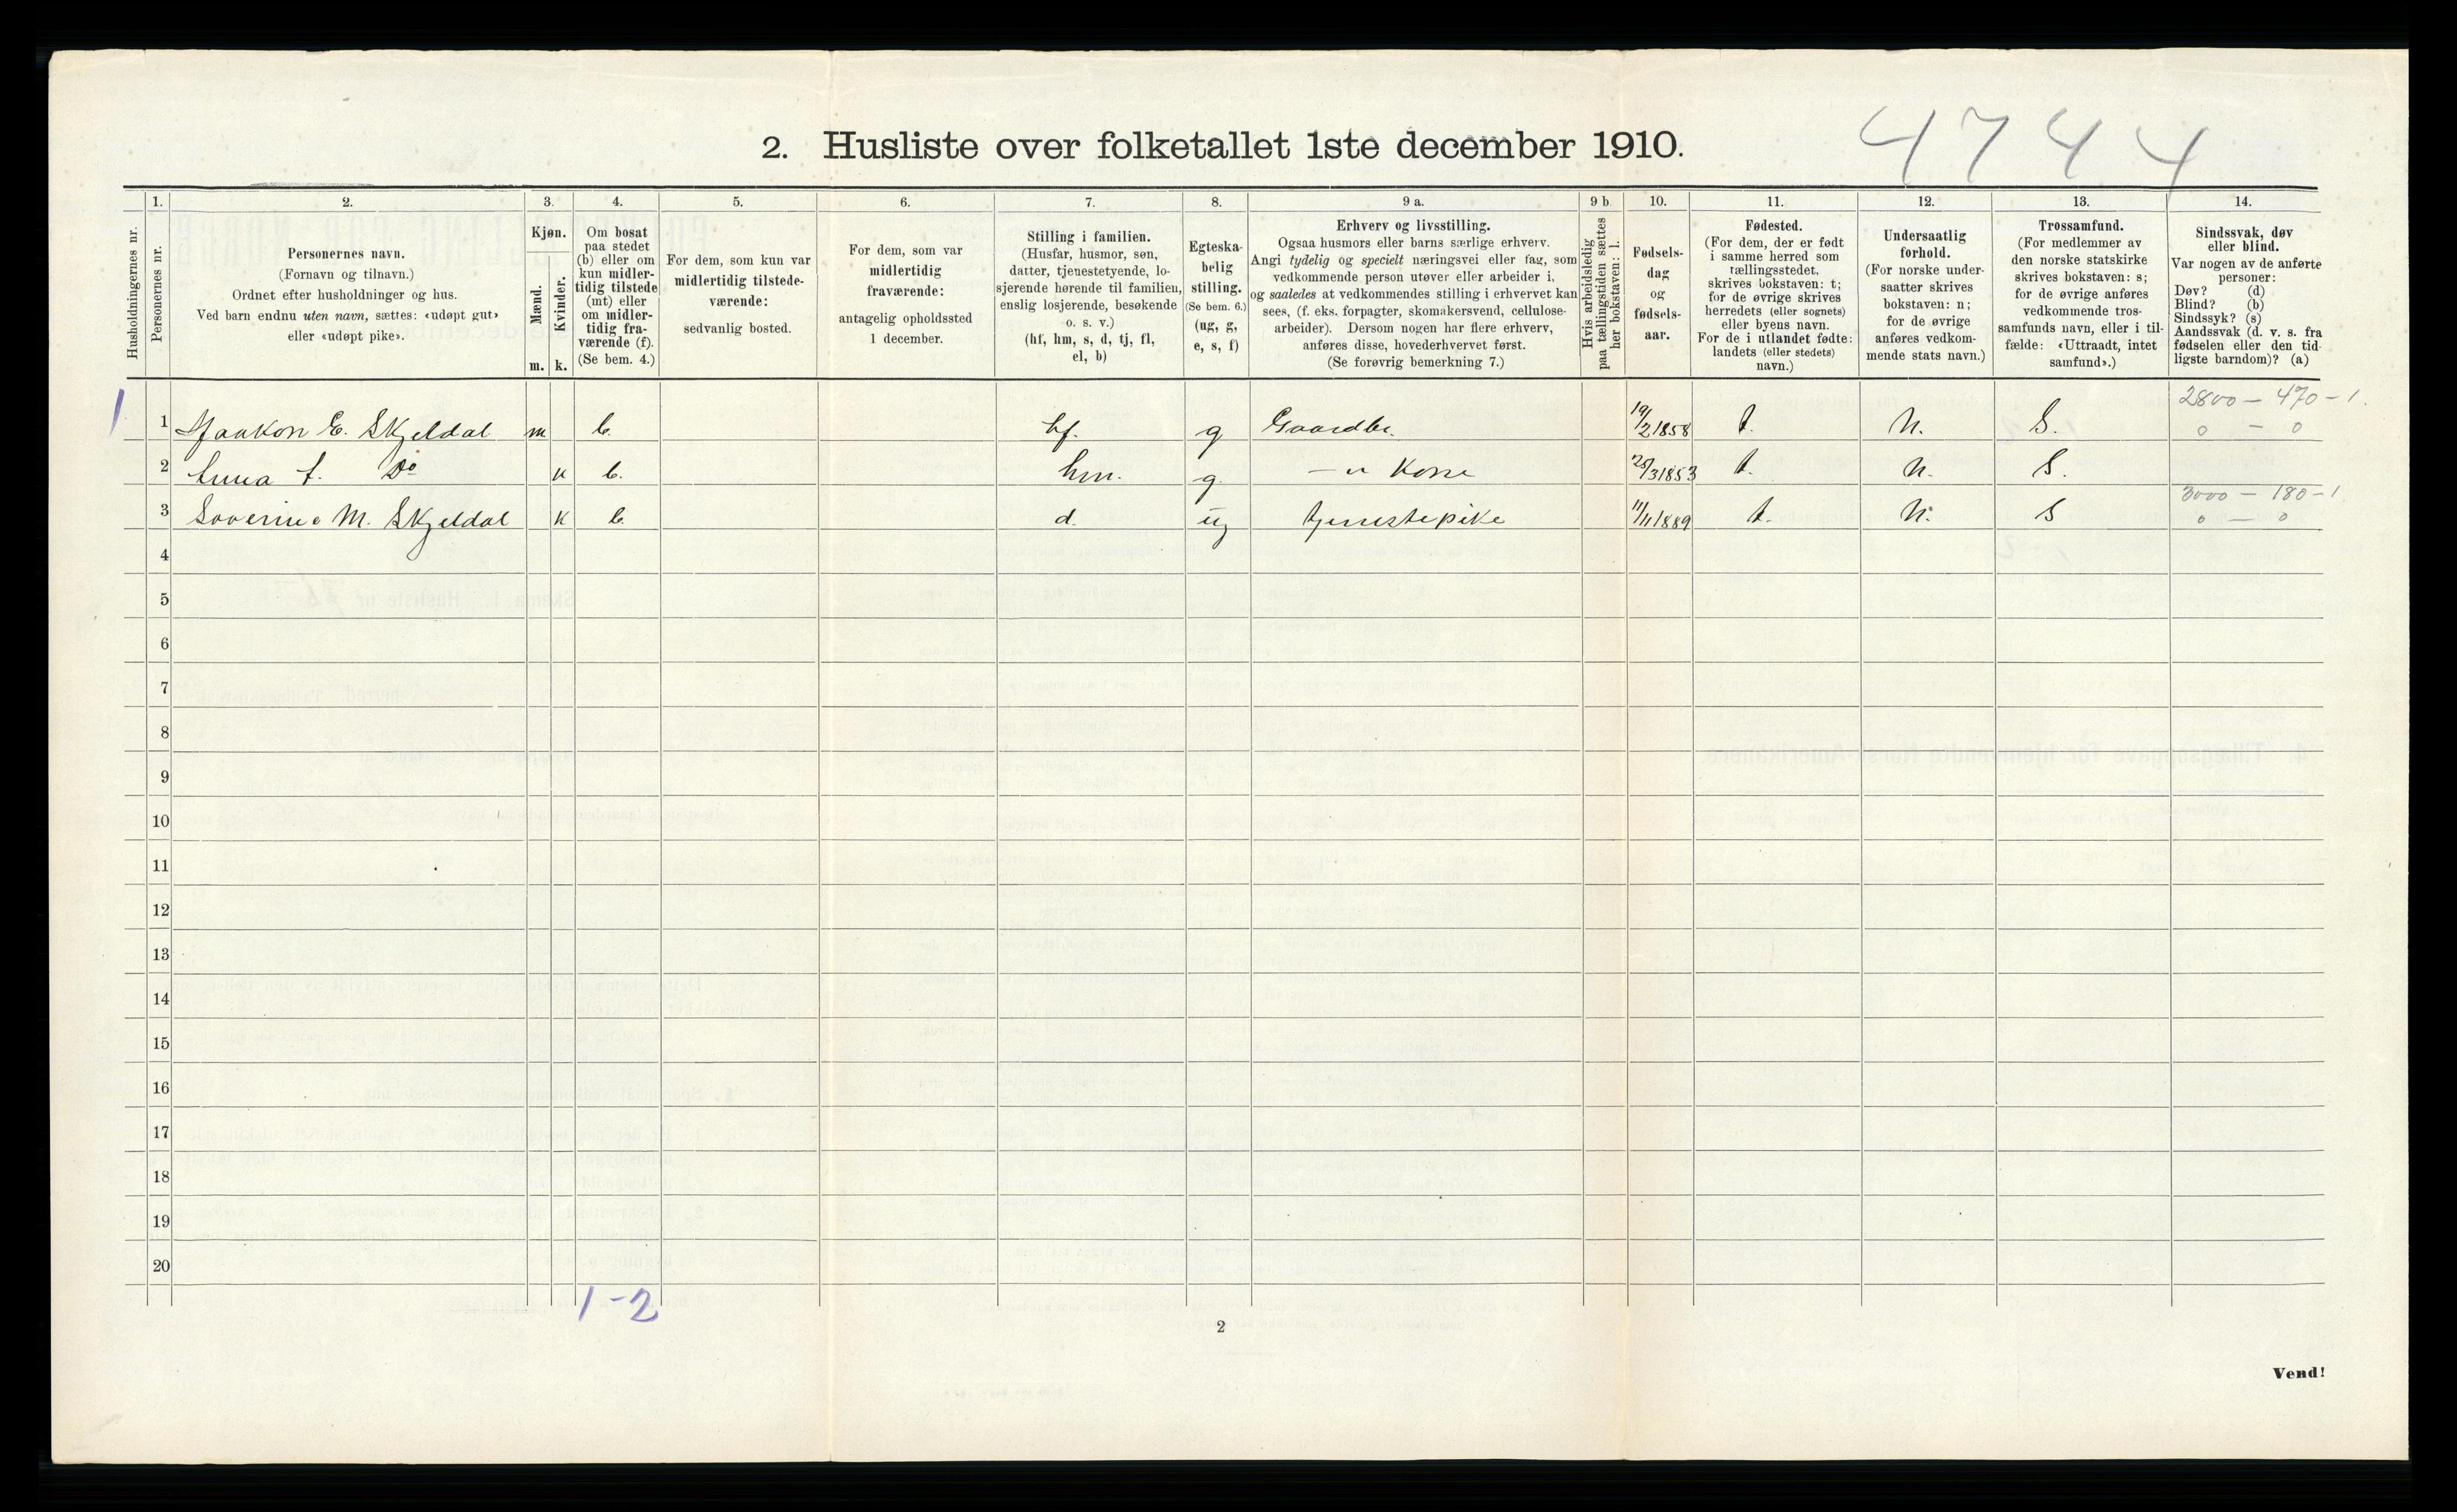 4744
2. Husliste over folketallet 1ste december 1910.
Husholdningernes nr.
1.
Personernes nr.
2.
Personernes navn.
(Fornavn og tilnavn.)
Ordnet efter husholdninger og hus.
Ved barn endnu uten navn, sættes: «udøpt gut»
eller «udøpt pike».
3.
Kjøn.
Mænd.
Kvinder.
m. k.
4.
Om bosat
paa stedet
(b) eller om
kun midler-
tidig tilstede
(mt) eller
om midler-
tidig fra-
værende (f).
(Se bem. 4.)
5.
For dem, som kun var
midlertidig tilstede-
værende:
sedvanlig bosted.
6.
For dem, som var
midlertidig
fraværende:
antagelig opholdssted
1 december.
7.
Stilling i familien.
(Husfar, husmor, søn,
datter, tjenestetyende, lo-
sjerende hørende til familien,
enslig losjerende, besøkende
o. s. v.)
(hf, hm, s, d, tj, fl,
el, b)
8.
Egteska-
belig
stilling.
(Se bem. 6.)
(ug, g,
e, s, f)
9 a.
Erhverv og livsstilling.
Ogsaa husmors eller barns særlige erhverv.
Angi tydelig og specielt næringsvei eller fag, som
vedkommende person utøver eller arbeider i,
og saaledes at vedkommendes stilling i erhvervet kan
sees, (f. eks. forpagter, skomakersvend, cellulose-
arbeider). Dersom nogen har flere erhverv,
anføres disse, hovederhvervet først.
(Se forøvrig bemerkning 7.)
9 b
Hvis arbeidsledig
paa tællingstiden sættes
her bokstaven: l.
10.
Fødsels-
dag
og
fødsels-
aar.
11.
Fødested.
(For dem, der er født
i samme herred som
tællingsstedet,
skrives bokstaven: t;
for de øvrige skrives
herredets (eller sognets)
eller byens navn.
For de i utlandet fødte:
landets (eller stedets)
navn.)
12.
Undersaatlig
forhold.
(For norske under-
saatter skrives
bokstaven: n;
for de øvrige
anføres vedkom-
mende stats navn.)
13.
Trossamfund.
(For medlemmer av
den norske statskirke
skrives bokstaven: s;
for de øvrige anføres
vedkommende tros-
samfunds navn, eller i til-
fælde: «Uttraadt, intet
samfund».)
14.
Sindssvak, døv
eller blind.
Var nogen av de anførte
personer:
Døv? (d)
Blind? (b)
Sindssyk? (s)
Aandssvak (d. v. s. fra
fødselen eller den tid-
ligste barndom)? (a)
2800 – 470 – 1.
1 1 Haakon E. Skjeldal m b. hf. g Gaardbr. 19/2 1858 t. N. S. 0 – 0
2 Anna do k b. hm. g. – " Kone 25/3 1853 t. N. S.
3000 – 180 – 1
3 Soverine M. Skjeldal k b. d. ug tjenestepike 11/11 1889 t. N. S 0 – 0
4
5
6
7
8
9
10
11
12
13
14
15
16
17
18
19
20
1–2
2
Vend!